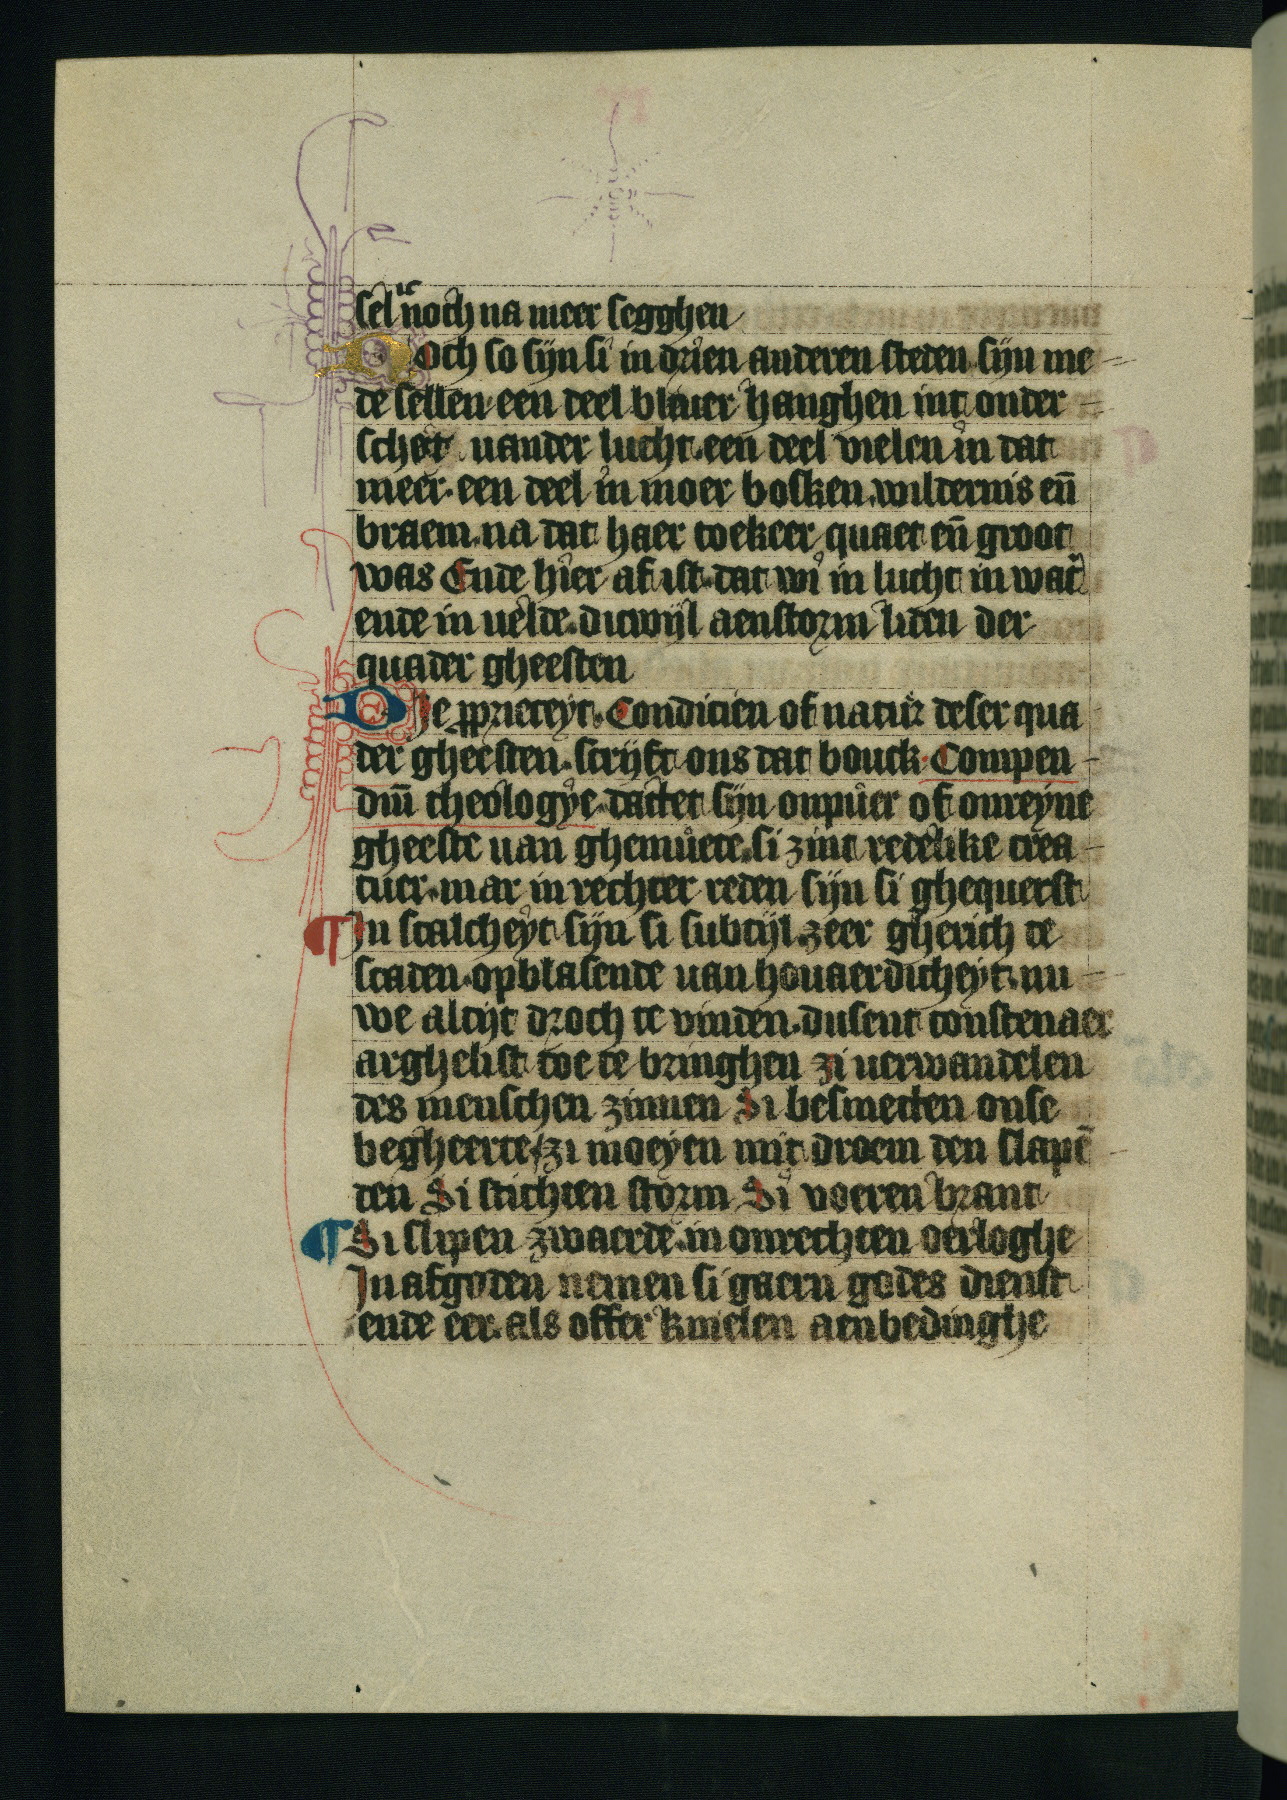 sel ic noch na meer segghen
Doch so sijn si in drien anderen steden sijn me
de sellen een deel bliuer hanghen int onder
scheit uander lucht. een deel vielen in dat
meer. een deel in moer bosken. wildernis en̄
braem. na dat haer toekeer quaet en̄ groot
was Ende hier af ist. dat wi in lucht in wat̄
ende in uelde. dicwijl aenstorm liden der
quader gheesten
Die ꝓprieteyt. Condicien of natuer deser qua
der gheesten. scrijft ons dat bouck. Compen
diū theologye. dattet sijn onpuer of onreyne
gheeste uan ghemuete. si zint redelike crea
tuer. mar in rechter reden sijn si ghequetst
¶ In scalcheyt sijn si subtijl. zeer gherich te
scaden. opblasende uan houaerdicheyt. nu
we altijt droch te vinden. dusent constenaer
arghelist toe te bringhen zi uerwandelen
des menschen zinnen Si besmetten onse
begheerte. zi moeyen mit droem den slapē
den Si stichten storm Si voeren brant
¶ Si slipen zwaerde. in onrechten oerloghe
In afgoden nemen si gaern godes dienst
ende eer. als offer knielen aenbedinghe